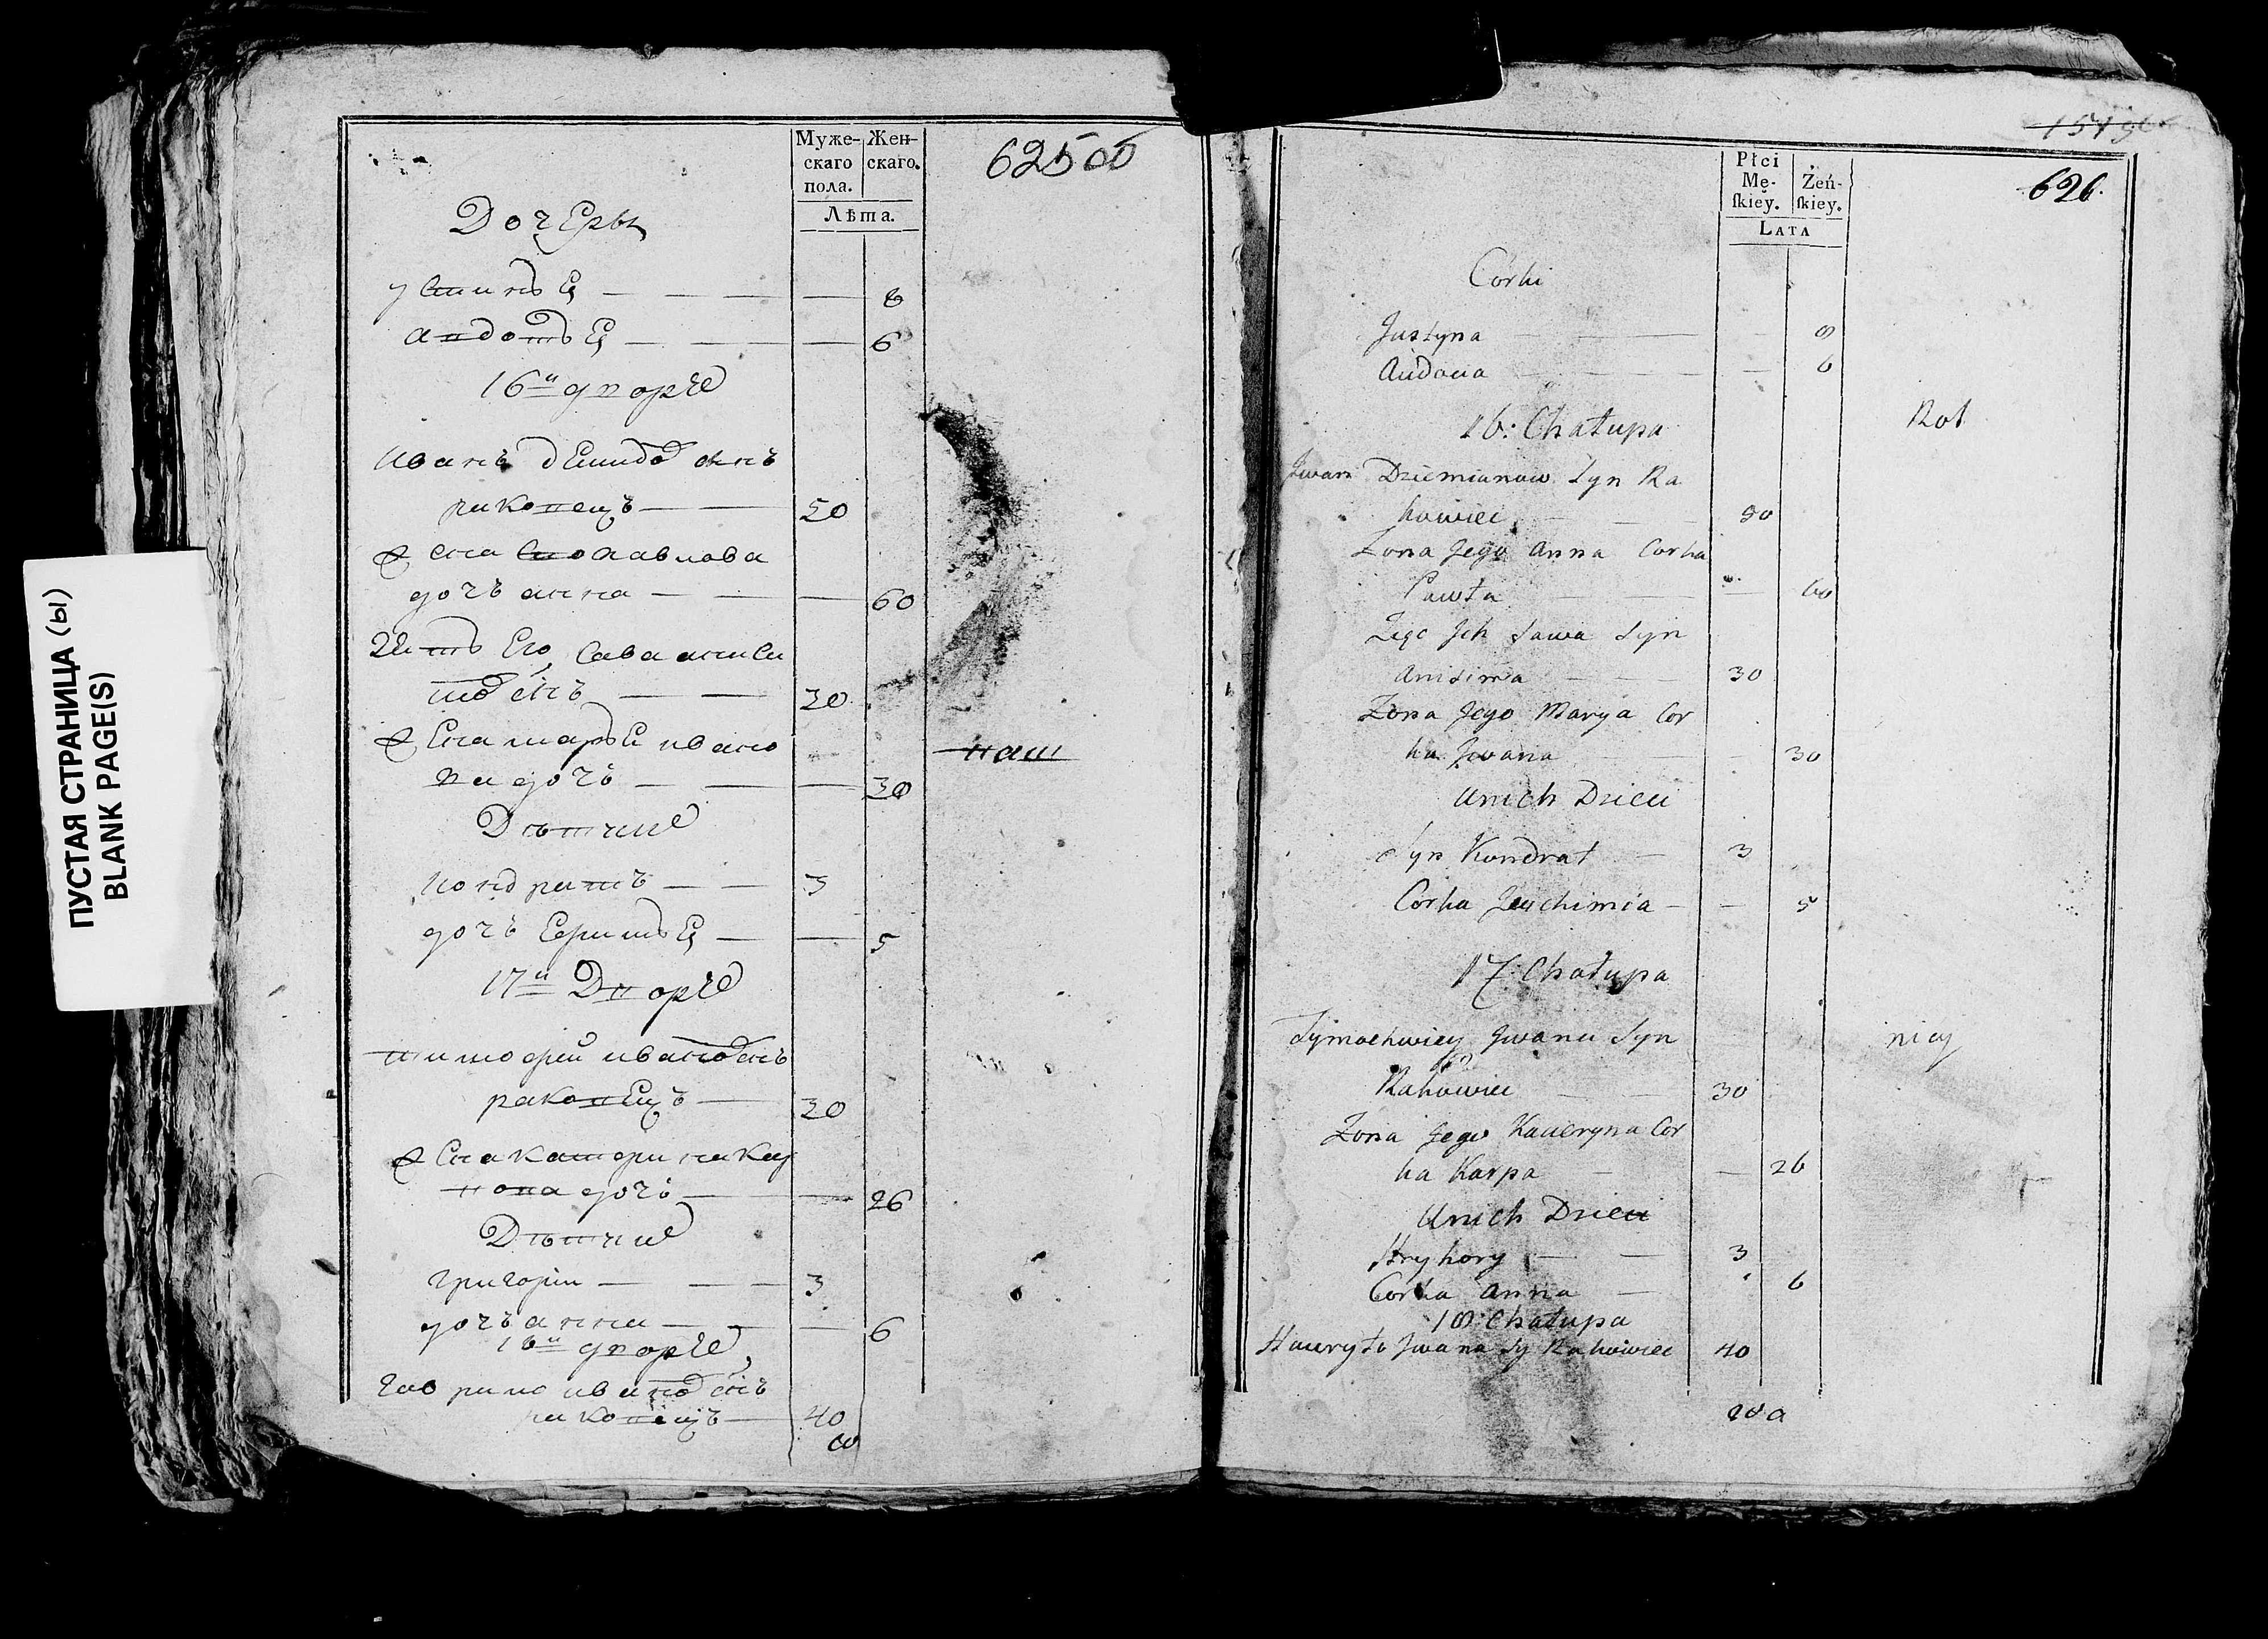 ПУСТАЯ СТРАНИЦА (Ы)
BLANK PAGE(S)
Муже-
скаго
пола.
Жен-
скаго.
Лѣта.
625об
Дочеры
устинья 8
авдотья 6
16й дворъ
Иванъ демидо снъ
раковецъ 50
жена Его павлова
дочъ анна 60
Зять Его, Сава аниси
мо снъ 30
жена марья ивано
ва дочь 30
наш
Дѣтии
кондратъ 3
дочъ Ефимья 5
17й Дворъ
тимофей ивано снъ
раковецъ 30
жена катерина кар
пова дочь 26
Дѣтии
григорій 3
дочь анна 6
18й дворъ
гаврило ивано снъ
раковецъ 40
626.
Płci
Mę-
ſkiey.
Żeń-
ſkiey.
LATA
Córki
Justyna 8
Audocia 6
16: Chałupa
Rot
Jwan Dziemianow Syn Ra
kowiec 50
Zona Jego Anna Corka
Pawła 60
Zięc Jch Sawa Syn
Anisima 30
Zona Jego Marya Cor
ka Jwana 30
U nich Dzieci
Syn Kondrat 3
Corka Jeuchimia 5
17: Chałupa
Tymochwiey Jwana Syn
nicy
Rakowiec 30
Zona Jego Kacieryna Cor
ka Karpa 26
U nich Dzieci
Hryhory 3
Corka Anna 6
18: Chałupa
Hauryło Jwana Sy Rakowiec 40